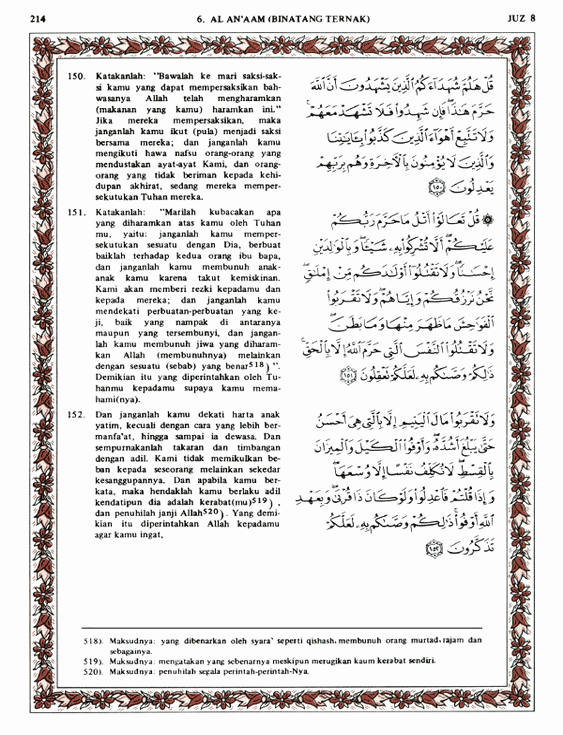 214
6. AL AN'AAM (BINATANG TERNAK)
JUZ 8
150. Katakanlah: "Bawalah ke mari saksi-sak-
si kamu yang dapat mempersaksikan bah-
wasanya Allah telah mengharamkan
(makanan yang kamu) haramkan ini."
Jika mereka mempersaksikan, maka
janganlah kamu ikut (pula) menjadi saksi
bersama mereka; dan janganlah kamu
mengikuti hawa nafsu orang-orang yang
mendustakan ayat-ayat Kami, dan orang-
orang yang tidak beriman kepada kehi-
dupan akhirat, sedang mereka memper-
sekutukan Tuhan mereka.
151. Katakanlah: "Marilah kubacakan apa
yang diharamkan atas kamu oleh Tuhan
mu, yaitu: janganlah kamu memper-
sekutukan sesuatu dengan Dia, berbuat
baiklah terhadap kedua orang ibu bapa,
dan janganlah kamu membunuh anak-
anak kamu karena takut kemiskinan.
Kami akan memberi rezki kepadamu dan
kepada mereka; dan janganlah kamu
mendekati perbuatan-perbuatan yang ke-
ji, baik yang nampak di antaranya
maupun yang tersembunyi, dan jangan-
lah kamu membunuh jiwa yang diharam-
kan Allah (membunuhnya) melainkan
dengan sesuatu (sebab) yang benar518)".
Demikian itu yang diperintahkan oleh Tu-
hanmu kepadamu supaya kamu mema-
hami(nya).
152. Dan janganlah kamu dekati harta anak
yatim, kecuali dengan cara yang lebih ber-
manfa'at, hingga sampai ia dewasa. Dan
sempurnakanlah takaran dan timbangan
dengan adil. Kami tidak memikulkan be-
ban kepada seseorang melainkan sekedar
kesanggupannya. Dan apabila kamu ber-
kata, maka hendaklah kamu berlaku adil
kendatipun dia adalah kerabat(mu)519),
dan penuhilah janji Allah520). Yang demi-
kian itu diperintahkan Allah kepadamu
agar kamu ingat,
قُلْ هَلُمَّ شُهَدَاءَكُمُ الَّذِينَ يَشْهَدُونَ أَنَّ اللَّهَ
حَرَّمَ هَٰذَا فَإِن شَهِدُوا فَلَا تَشْهَدْ مَعَهُمْ
وَلَا تَتَّبِعْ أَهْوَاءَ الَّذِينَ كَذَّبُوا بِآيَاتِنَا
وَالَّذِينَ لَا يُؤْمِنُونَ بِالْآخِرَةِ وَهُم بِرَبِّهِمْ
يَعْدِلُونَ ١٥٠
۞ قُلْ تَعَالَوْا أَتْلُ مَا حَرَّمَ رَبُّكُمْ
عَلَيْكُمْ أَلَّا تُشْرِكُوا بِهِ شَيْئًا وَبِالْوَالِدَيْنِ
إِحْسَانًا وَلَا تَقْتُلُوا أَوْلَادَكُم مِّنْ إِمْلَاقٍ
نَّحْنُ نَرْزُقُكُمْ وَإِيَّاهُمْ وَلَا تَقْرَبُوا
الْفَوَاحِشَ مَا ظَهَرَ مِنْهَا وَمَا بَطَنَ
وَلَا تَقْتُلُوا النَّفْسَ الَّتِي حَرَّمَ اللَّهُ إِلَّا بِالْحَقِّ
ذَٰلِكُمْ وَصَّاكُم بِهِ لَعَلَّكُمْ تَعْقِلُونَ ١٥١
وَلَا تَقْرَبُوا مَالَ الْيَتِيمِ إِلَّا بِالَّتِي هِيَ أَحْسَنُ
حَتَّىٰ يَبْلُغَ أَشُدَّهُ وَأَوْفُوا الْكَيْلَ وَالْمِيزَانَ
بِالْقِسْطِ لَا نُكَلِّفُ نَفْسًا إِلَّا وُسْعَهَا
وَإِذَا قُلْتُمْ فَاعْدِلُوا وَلَوْ كَانَ ذَا قُرْبَىٰ وَبِعَهْدِ
اللَّهِ أَوْفُوا ذَٰلِكُمْ وَصَّاكُم بِهِ لَعَلَّكُمْ
تَذَكَّرُونَ ١٥٢
518). Maksudnya: yang dibenarkan oleh syara' seperti qishash, membunuh orang murtad, rajam dan
sebagainya.
519). Maksudnya: mengatakan yang sebenarnya meskipun merugikan kaum kerabat sendiri.
520). Maksudnya: penuhilah segala perintah-perintah-Nya.